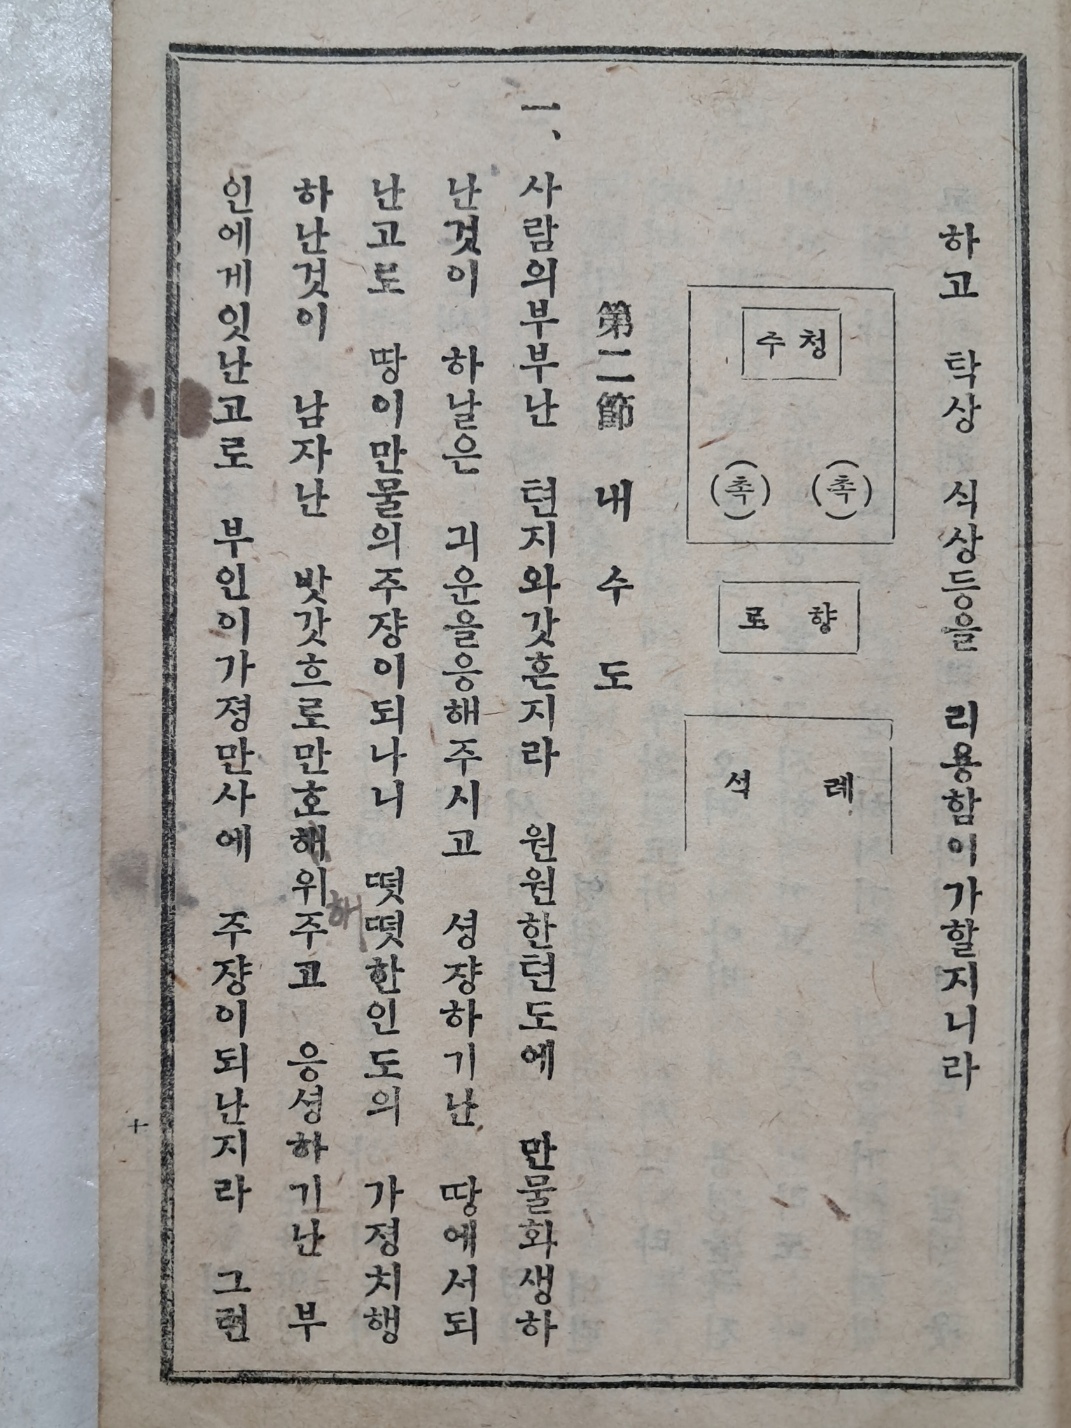 하고 탁상 식상등을 리용함이가할지니라
청수
(촉) (촉)
향로
례석
第二節 내수도
一、 사람의부부난 텬지와갓흔지라 원원한텬도에 만물화생하
난것이 하날은 긔운을응해주시고 셩쟝하기난 땅에서되
난고로 땅이만물의주쟝이되나니 떳떳한인도의 가정치행
하난것이 남자난 밧갓흐로만호해위주고 응셩하기난 부
해
인에게잇난고로 부인이가졍만사에 주쟝이되난지라 그런
十